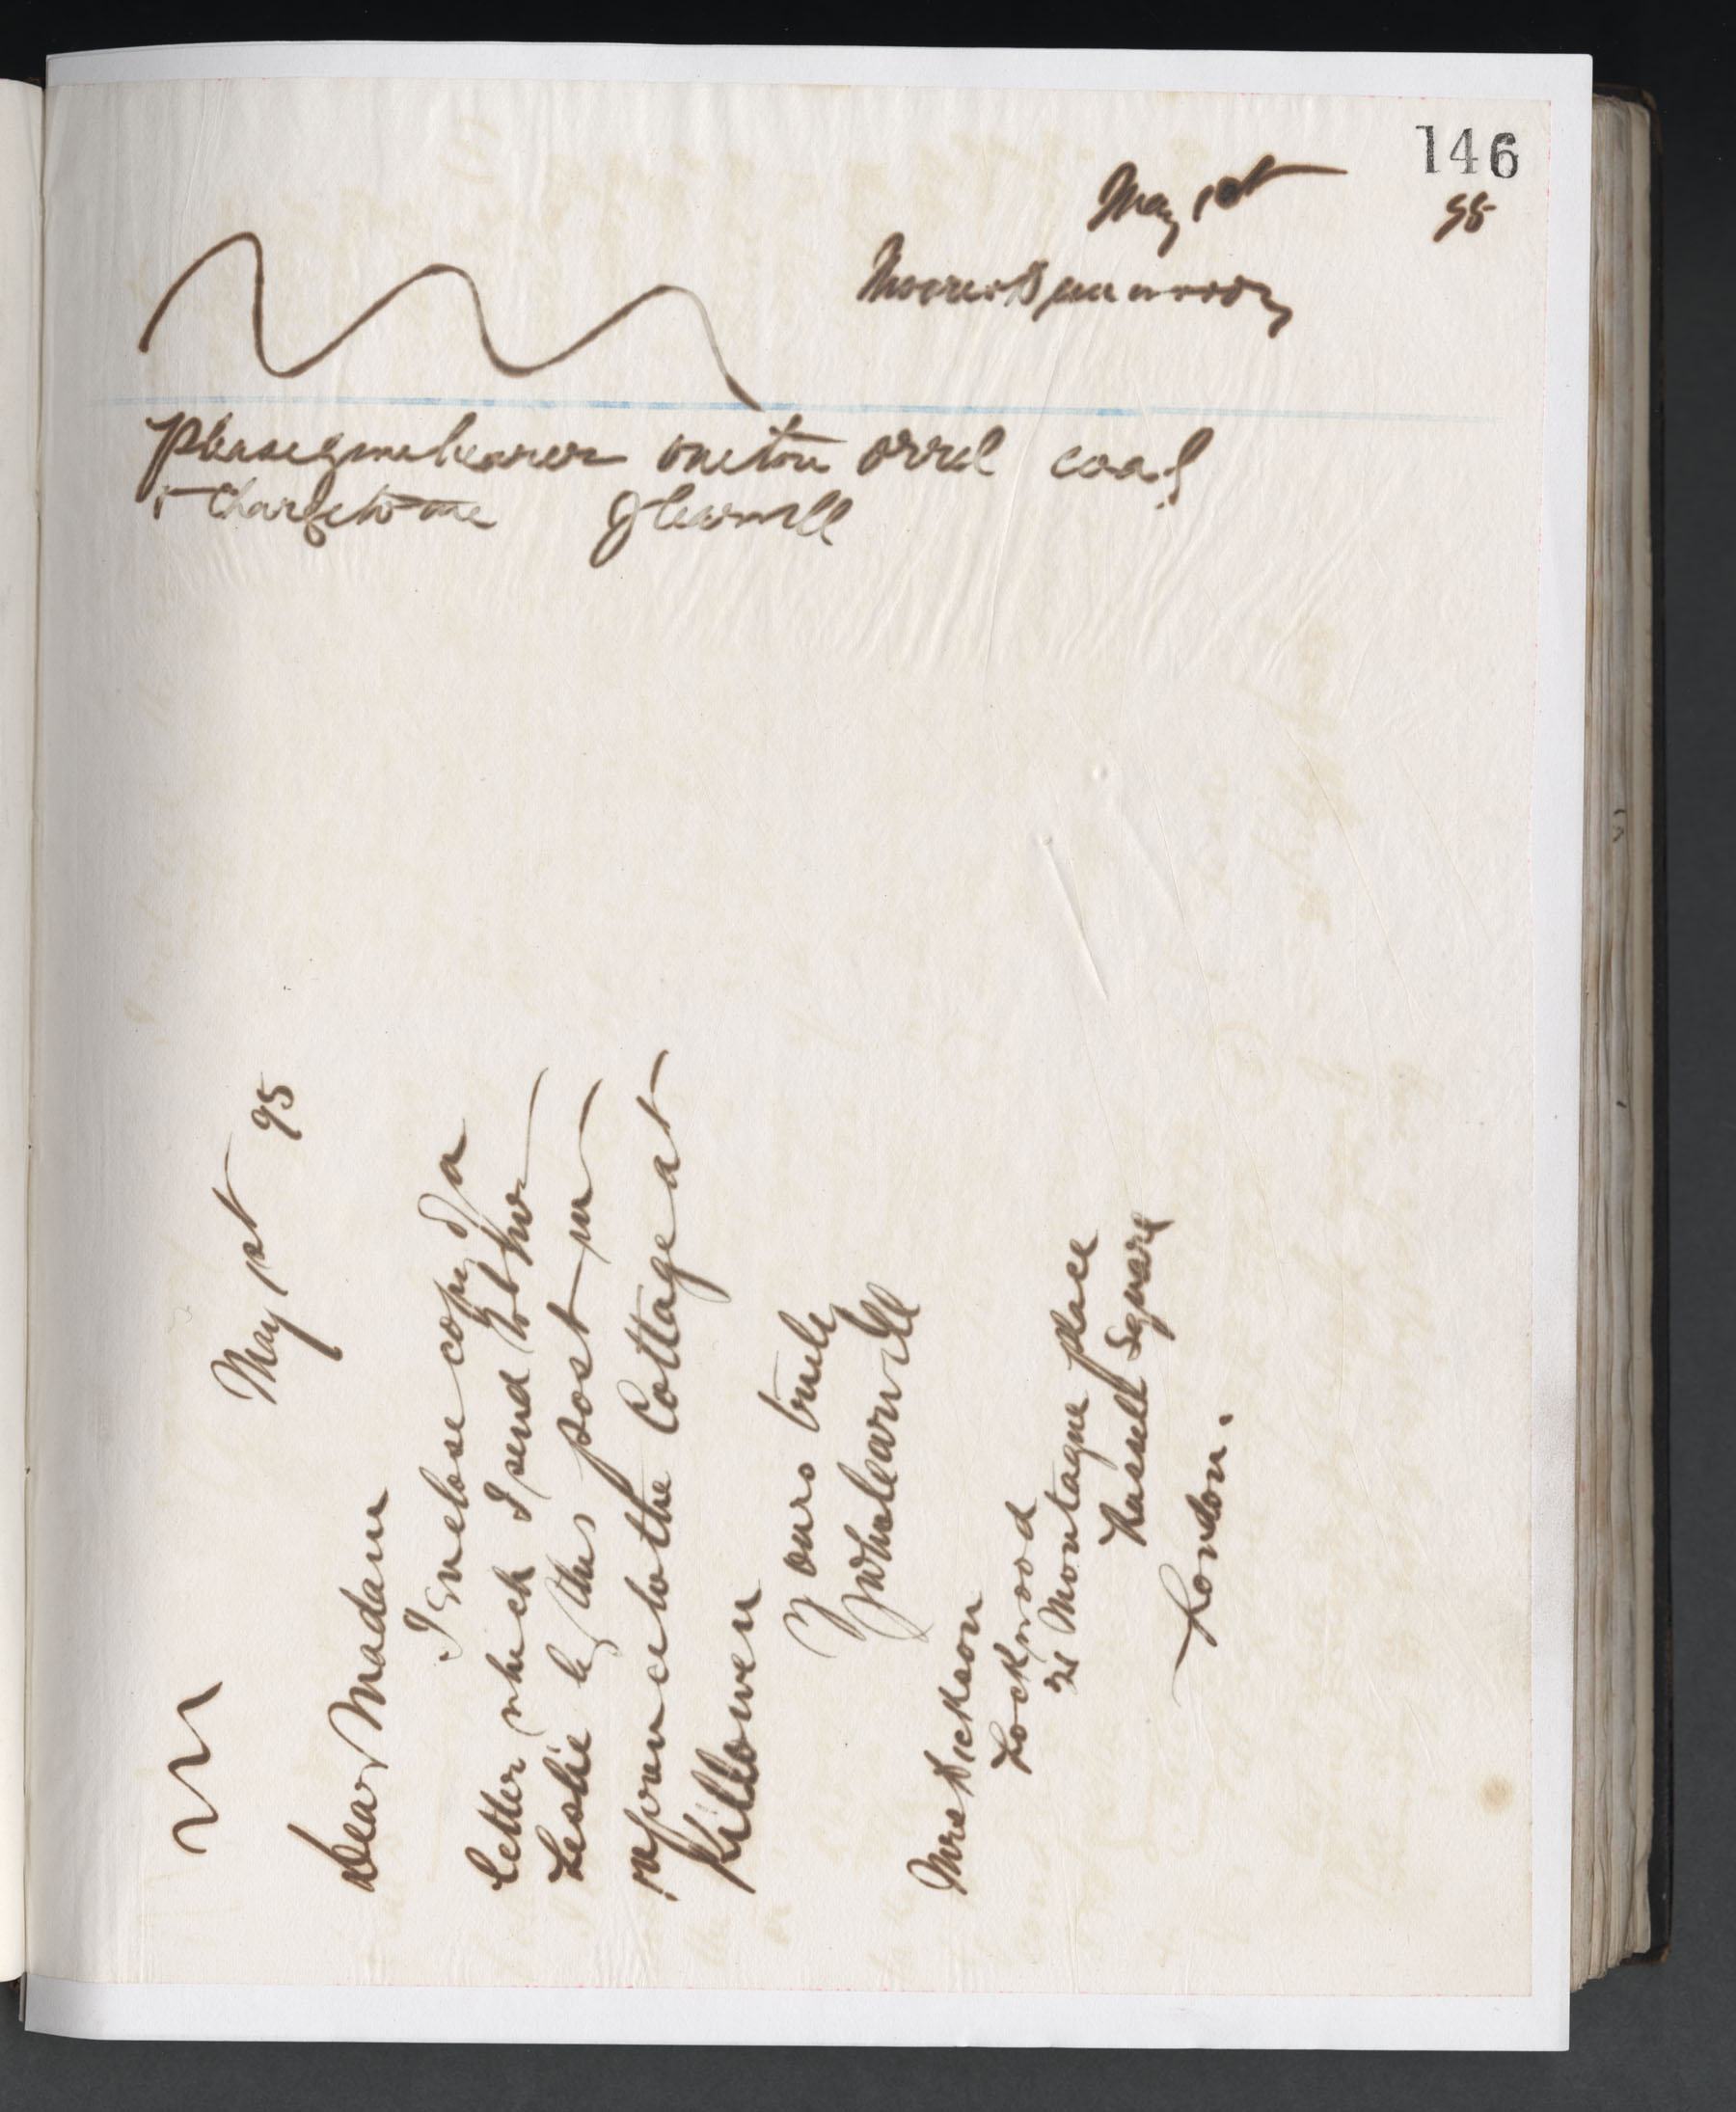 146
May 1st 95
Please give bearer one ton orrel coal
& charge to me J Wh Learmll
May 1st 95
Dear Madam
I Enclose copy of a
letter which I send to Mr
Leslie by this post in
reference to the Cottage at
Killowen
Yours truly
Mrs Dickson
Lockwood
21 Montague place
Russell Square
London.